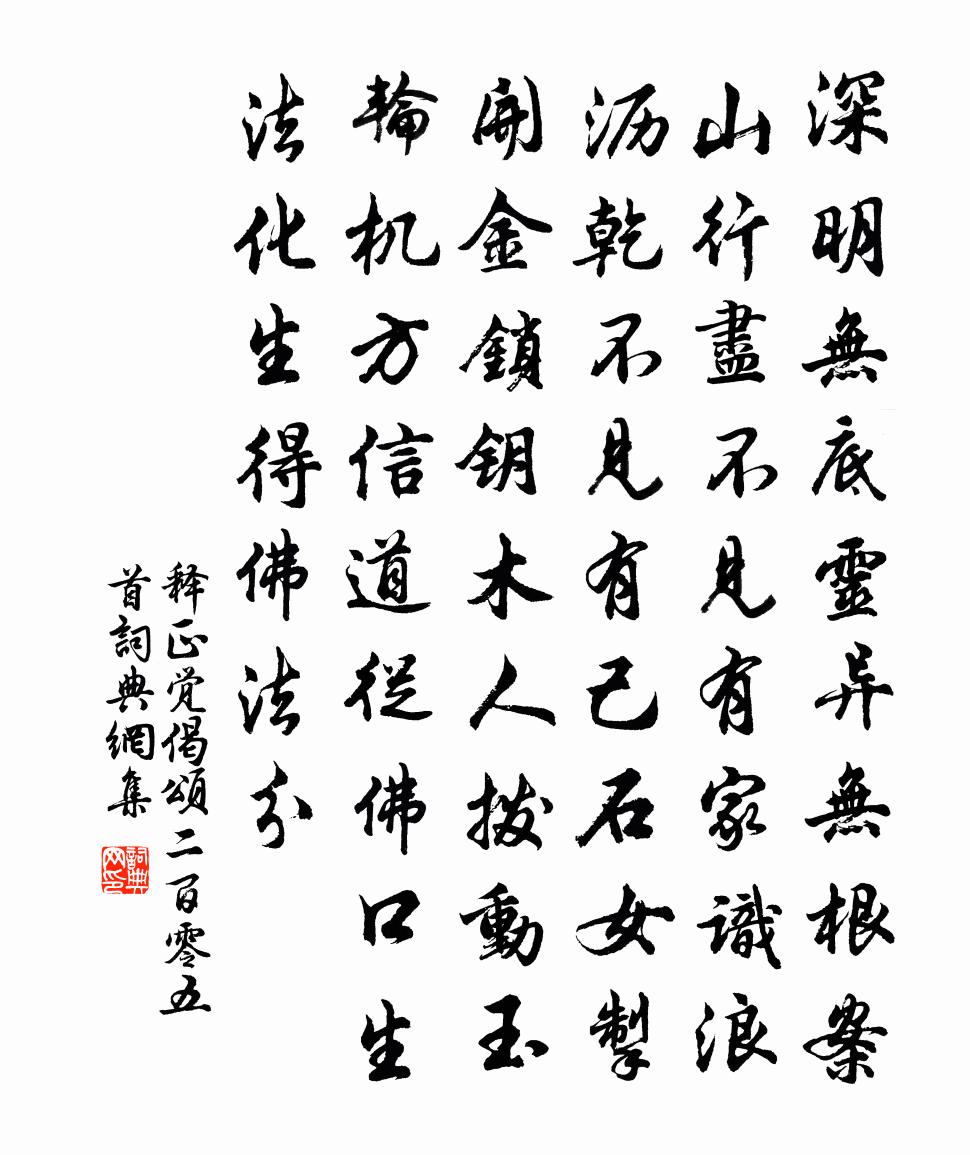 深明無底靈异無根案
山行盡不見有家識浪
沥乾不見有己石女掣
開金鎖钥木人拨動玉
輪机方信道從佛口生
法化生得佛法分
释正觉偈頌二百零五
首詞典網集
詞典网印